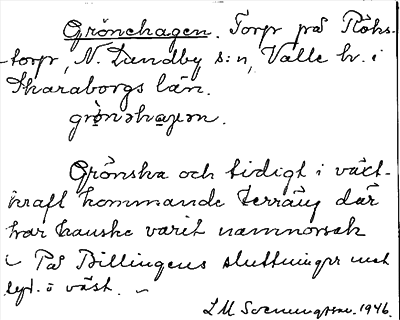 Grönehagen. Torp på Röks-
torp, N. Lundby s:n, Valle hr. i
Skaraborgs län.
Grönska och tidigt i växt-
kraft kommande terräng där
har kanske varit namnorsak
På Billingens sluttningar mot
väst. –
LM Svenungsson. 1946.